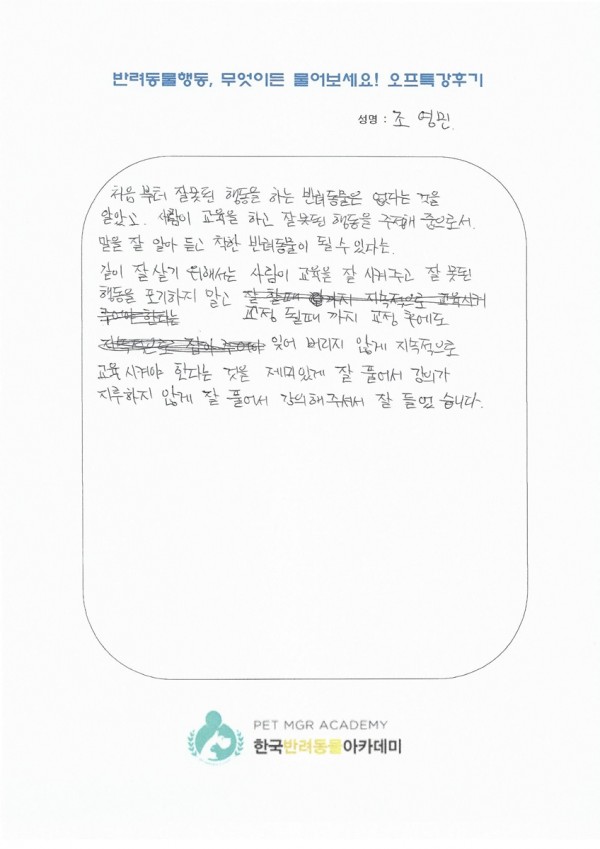 반려동물행동, 무엇이든 물어보세요! 오프특강후기
성명 : 조 영민
처음 부터 잘못된 행동을 하는 반려동물은 없다는 것을
알았고. 사람이 교육을 하고 잘못된 행동을 주의해 줌으로서.
말을 잘 알아 듣고 착한 반려동물이 될 수 있다는.
같이 잘 살기 위해서는 사람이 교육을 잘 시켜주고 잘 못된
행동을 포기하지 말고 잘 할때 까지 지속적으로 교육시켜
주어야 한다는 교정 될때 까지 교정 후에도
지속적으로 잡아 주어야 잊어 버리지 않게 지속적으로
교육 시켜야 한다는 것을 제미있게 잘 풀어서 강의가
지루하지 않게 잘 풀어서 강의해주셔서 잘 들었 습니다.
PET MGR ACADEMY
한국반려동물아카데미